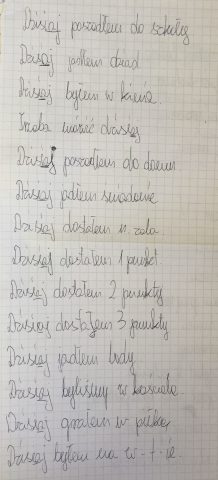 Dzisiaj poszedłem do szkoły
Dzisaj jadłem obiad
Dzisaj byłem w kinie.
Trzeba mówić dzisiej
Dzisiaj poszedłem do domu
Dzisiaj jadłem śniadanie
Dzisiaj dostałem
Dzisiaj dostałem 1 punkt
Dzisiej dostałem 2 punkty
Dzisiaj dostałem 3 punkty
Dzisiej jadłem lody
Dzisiaj byliśmy w kościele
Dzisiaj grałem w piłkę
Dzisiaj byłem na w-f-ie.